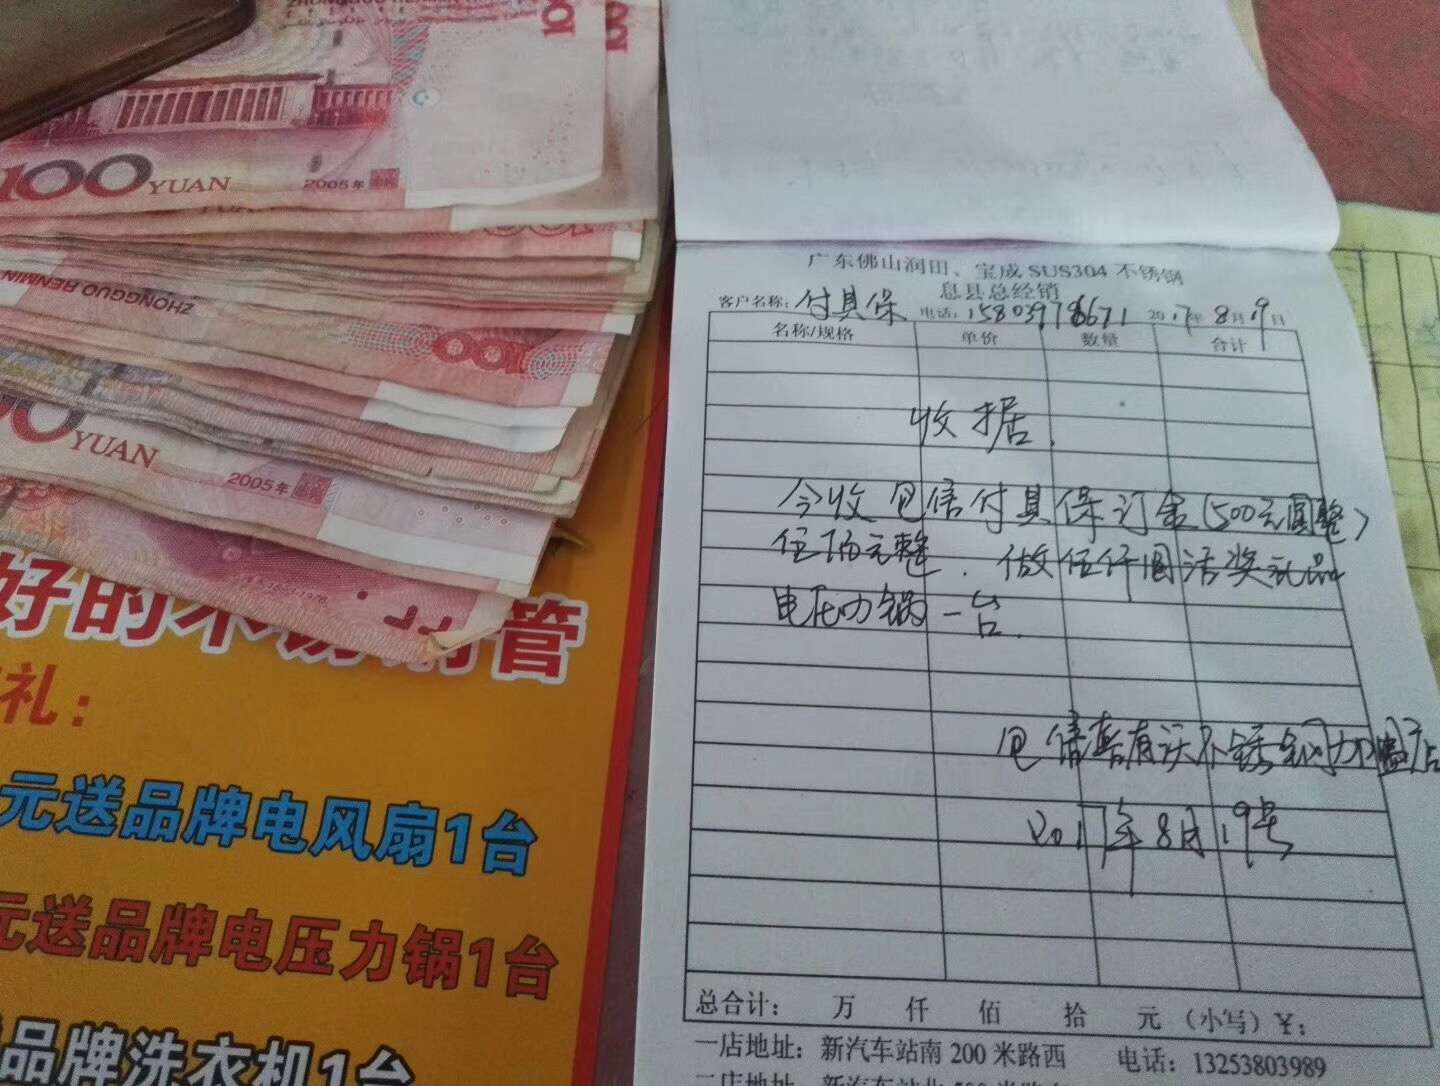 ZHONGGUO RENMIN
100
100 YUAN
2005年
ZHONGGUO RENMIN
100
YUAN
2005年
好的不锈钢管
礼：
元送品牌电风扇1台
元送品牌电压力锅1台
品牌洗衣机1台
广东佛山润田、宝成 SUS304 不锈钢
息县总经销
客户名称：付具保 电话：15803978671 2017年8月19日
名称/规格 单价 数量 合计
收据
今收 付具保订金(500元圆整)
伍佰元整．做伍仟圆活奖礼品
电压力锅一台．
不锈钢加盟店
2017年8月19号
总合计： 万 仟 佰 拾 元（小写）￥：
一店地址：新汽车站南 200 米路西 电话：13253803989